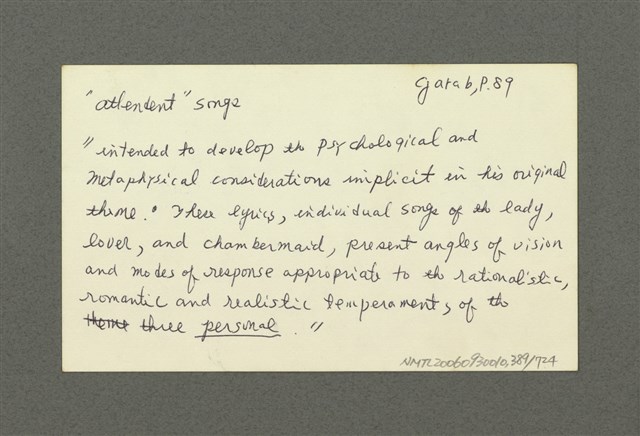 Garab, P.89
"attendent" songs
"intended to develop the psychological and
metaphysical considerations implicit in his original
theme." These lyrics, individual songs of the lady,
lover, and chambermaid, present angles of vision
and modes of response appropriate to the rationalistic,
romantic and realistic temperaments, of the
theme three personal."
NMTL20060930010,389/724